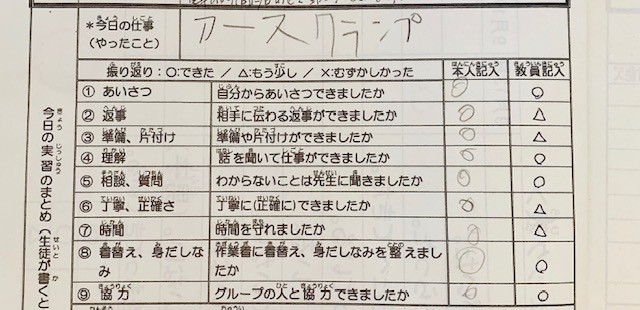 *今日の仕事
(やったこと)
アースクランプ
振り返り：○:できた / △:もう少し / ×:むずかしかった 本人記入 教員記入
① あいさつ 自分からあいさつできましたか ○ ○
② 返事 相手に伝わる返事ができましたか ○ △
③ 準備、片付け 準備や片付けができましたか ○ △
④ 理解 話を聞いて仕事ができましたか ○ ○
⑤ 相談、質問 わからないことは先生に聞きましたか ○ ○
⑥ 丁寧、正確さ 丁寧に(正確に)できましたか ○ △
⑦ 時間 時間を守れましたか ○ △
⑧ 着替え、身だしなみ 作業着に着替え、身だしなみを整えましたか ○ ○
⑨ 協力 グループの人と協力できましたか ○ ○
今日の実習のまとめ(生徒が書くと